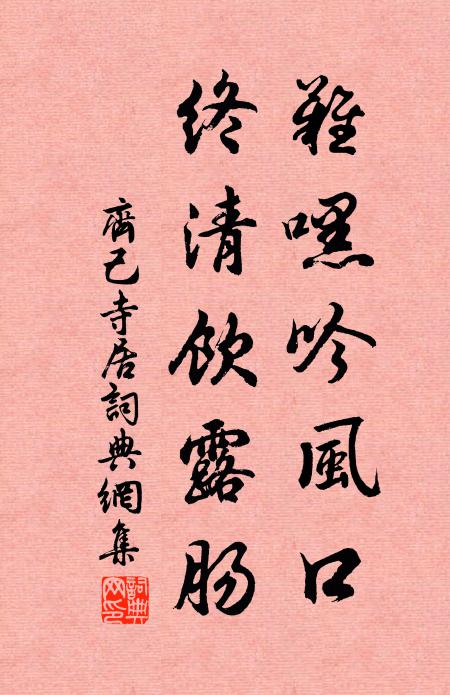 難嘿吟風口
終清飲露腸
齊己寺居詞典網集
詞典网印